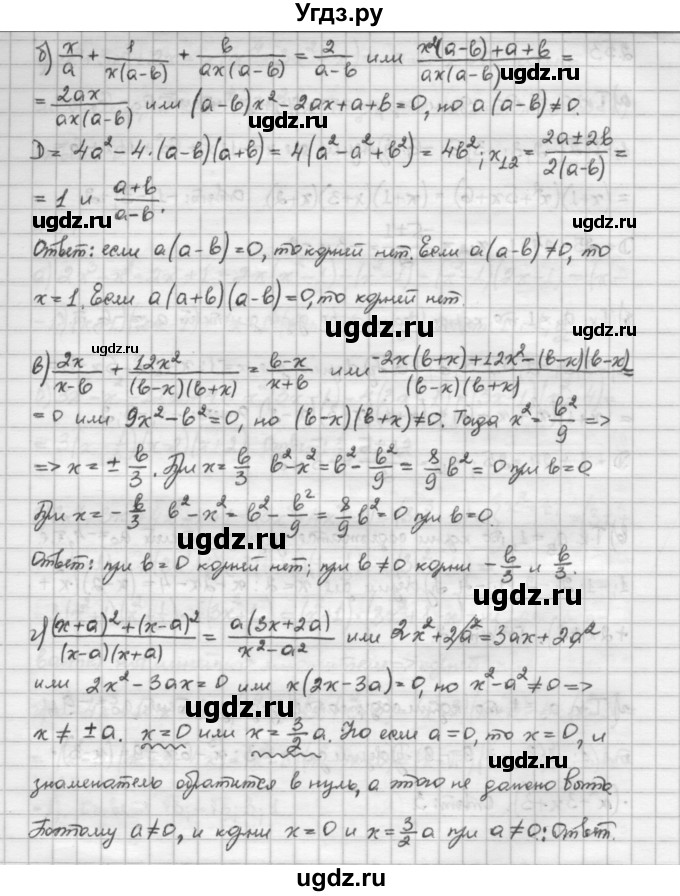 Угдз.ру
б) x/a + 1/(x(a-b)) + b/(ax(a-b)) = 2/(a-b) или (x²(a-b)+a+b)/(ax(a-b)) =
= 2ax/(ax(a-b)) или (a-b)x² - 2ax + a + b = 0, но a(a-b) ≠ 0.
D = 4a² - 4·(a-b)(a+b) = 4(a² - a² + b²) = 4b²; x₁₂ = (2a ± 2b)/(2(a-b)) =
= 1 и (a+b)/(a-b).
ugdz.ru ugdz.ru
Ответ: если a(a-b) = 0, то корней нет. Если a(a-b) ≠ 0, то
x = 1. Если a(a+b)(a-b) = 0, то корней нет.
ugdz.ru
в) 2x/(x-b) + 12x²/((b-x)(b+x)) = (b-x)/(x+b) или (-2x(b+x)+12x²-(b-x)(b-x))/((b-x)(b+x)) =
= 0 или 9x² - b² = 0, но (b-x)(b+x) ≠ 0. Тогда x² = b²/9 =>
=> x = ± b/3. При x = b/3 b² - x² = b² - b²/9 = 8/9 b² = 0 при b = 0.
При x = - b/3 b² - x² = b² - b²/9 = 8/9 b² = 0 при b = 0.
ugdz.ru
Ответ: при b = 0 корней нет; при b ≠ 0 корни - b/3 и b/3.
г) ((x+a)² + (x-a)²)/((x-a)(x+a)) = a(3x+2a)/(x²-a²) или 2x² + 2a² = 3ax + 2a²
или 2x² - 3ax = 0 или x(2x-3a) = 0, но x² - a² ≠ 0 =>
x ≠ ± a. x = 0 или x = 3/2 a. Но если a = 0, то x = 0, и
знаменатель обратится в нуль, а этого не должно быть.
Поэтому a ≠ 0, и корни x = 0 и x = 3/2 a при a ≠ 0: Ответ.
ugdz.ru